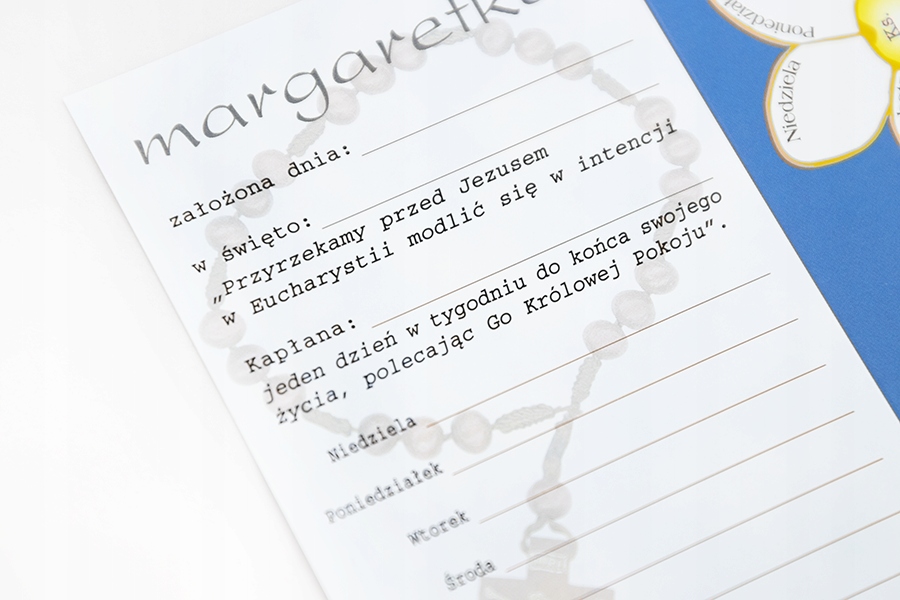 margaretka
założona dnia:
w święto:
„Przyrzekamy przed Jezusem
w Eucharystii modlić się w intencji
Kapłana:
jeden dzień w tygodniu do końca swojego
życia, polecając Go Królowej Pokoju”.
Niedziela
Poniedziałek
Wtorek
Środa
Poniedział
Niedziela
Ks.